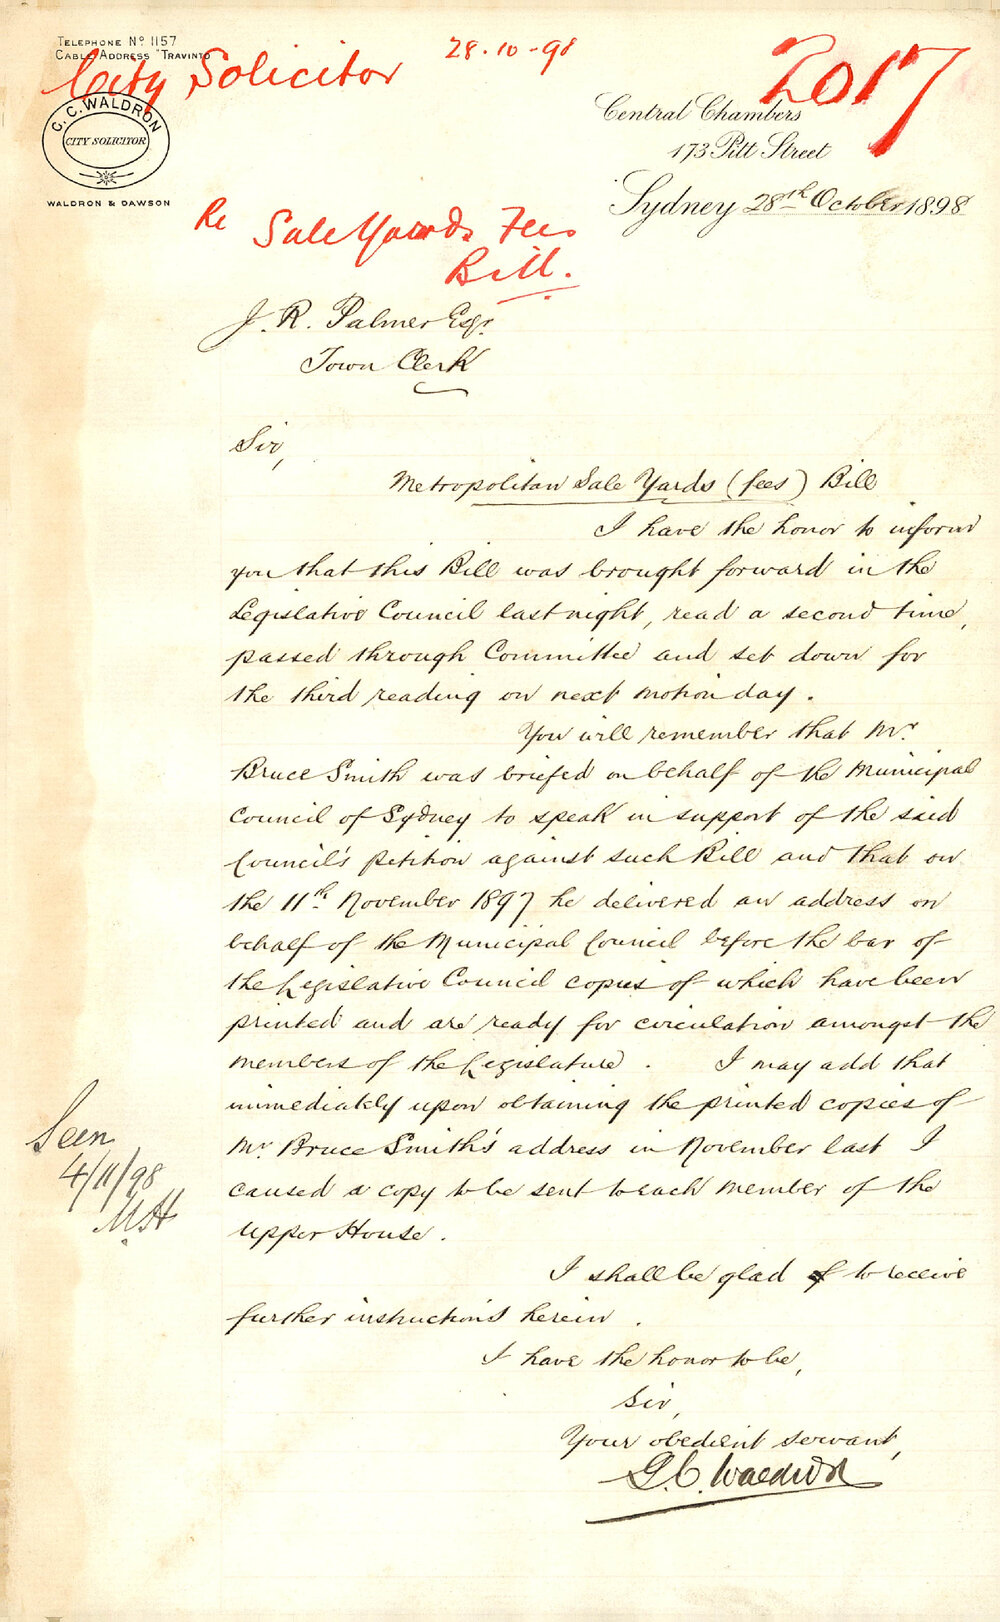 TELEPHONE No 1157
CABLE ADDRESS "TRAVINTO
City Solicitor
28.10-98
2017
C. C. WALDRON
CITY SOLICITOR
WALDRON & DAWSON
Central Chambers
173 Pitt Street
Sydney 28th October 1898
Re Sale Yards Fees
Bill.
J. R. Palmer Esqr.
Town Clerk
Sir,
Metropolitan Sale Yards (fees) Bill
I have the honor to inform
you that this Bill was brought forward in the
Legislative Council last night, read a second time,
passed through Committee and set down for
the third reading on next motion day.
You will remember that Mr.
Bruce Smith was briefed on behalf of the Municipal
Council of Sydney to speak in support of the said
Council's petition against such Bill and that on
the 11th November 1897 he delivered an address on
behalf of the Municipal Council before the bar of
the Legislative Council copies of which have been
printed and are ready for circulation amongst the
members of the Legislature. I may add that
immediately upon obtaining the printed copies of
Mr. Bruce Smith's address in November last I
caused a copy to be sent to each member of the
Upper House.
I shall be glad to receive
further instructions herein.
I have the honor to be,
Sir,
Your obedient servant,
G. C. Waldron
Seen
4/11/98
M.H